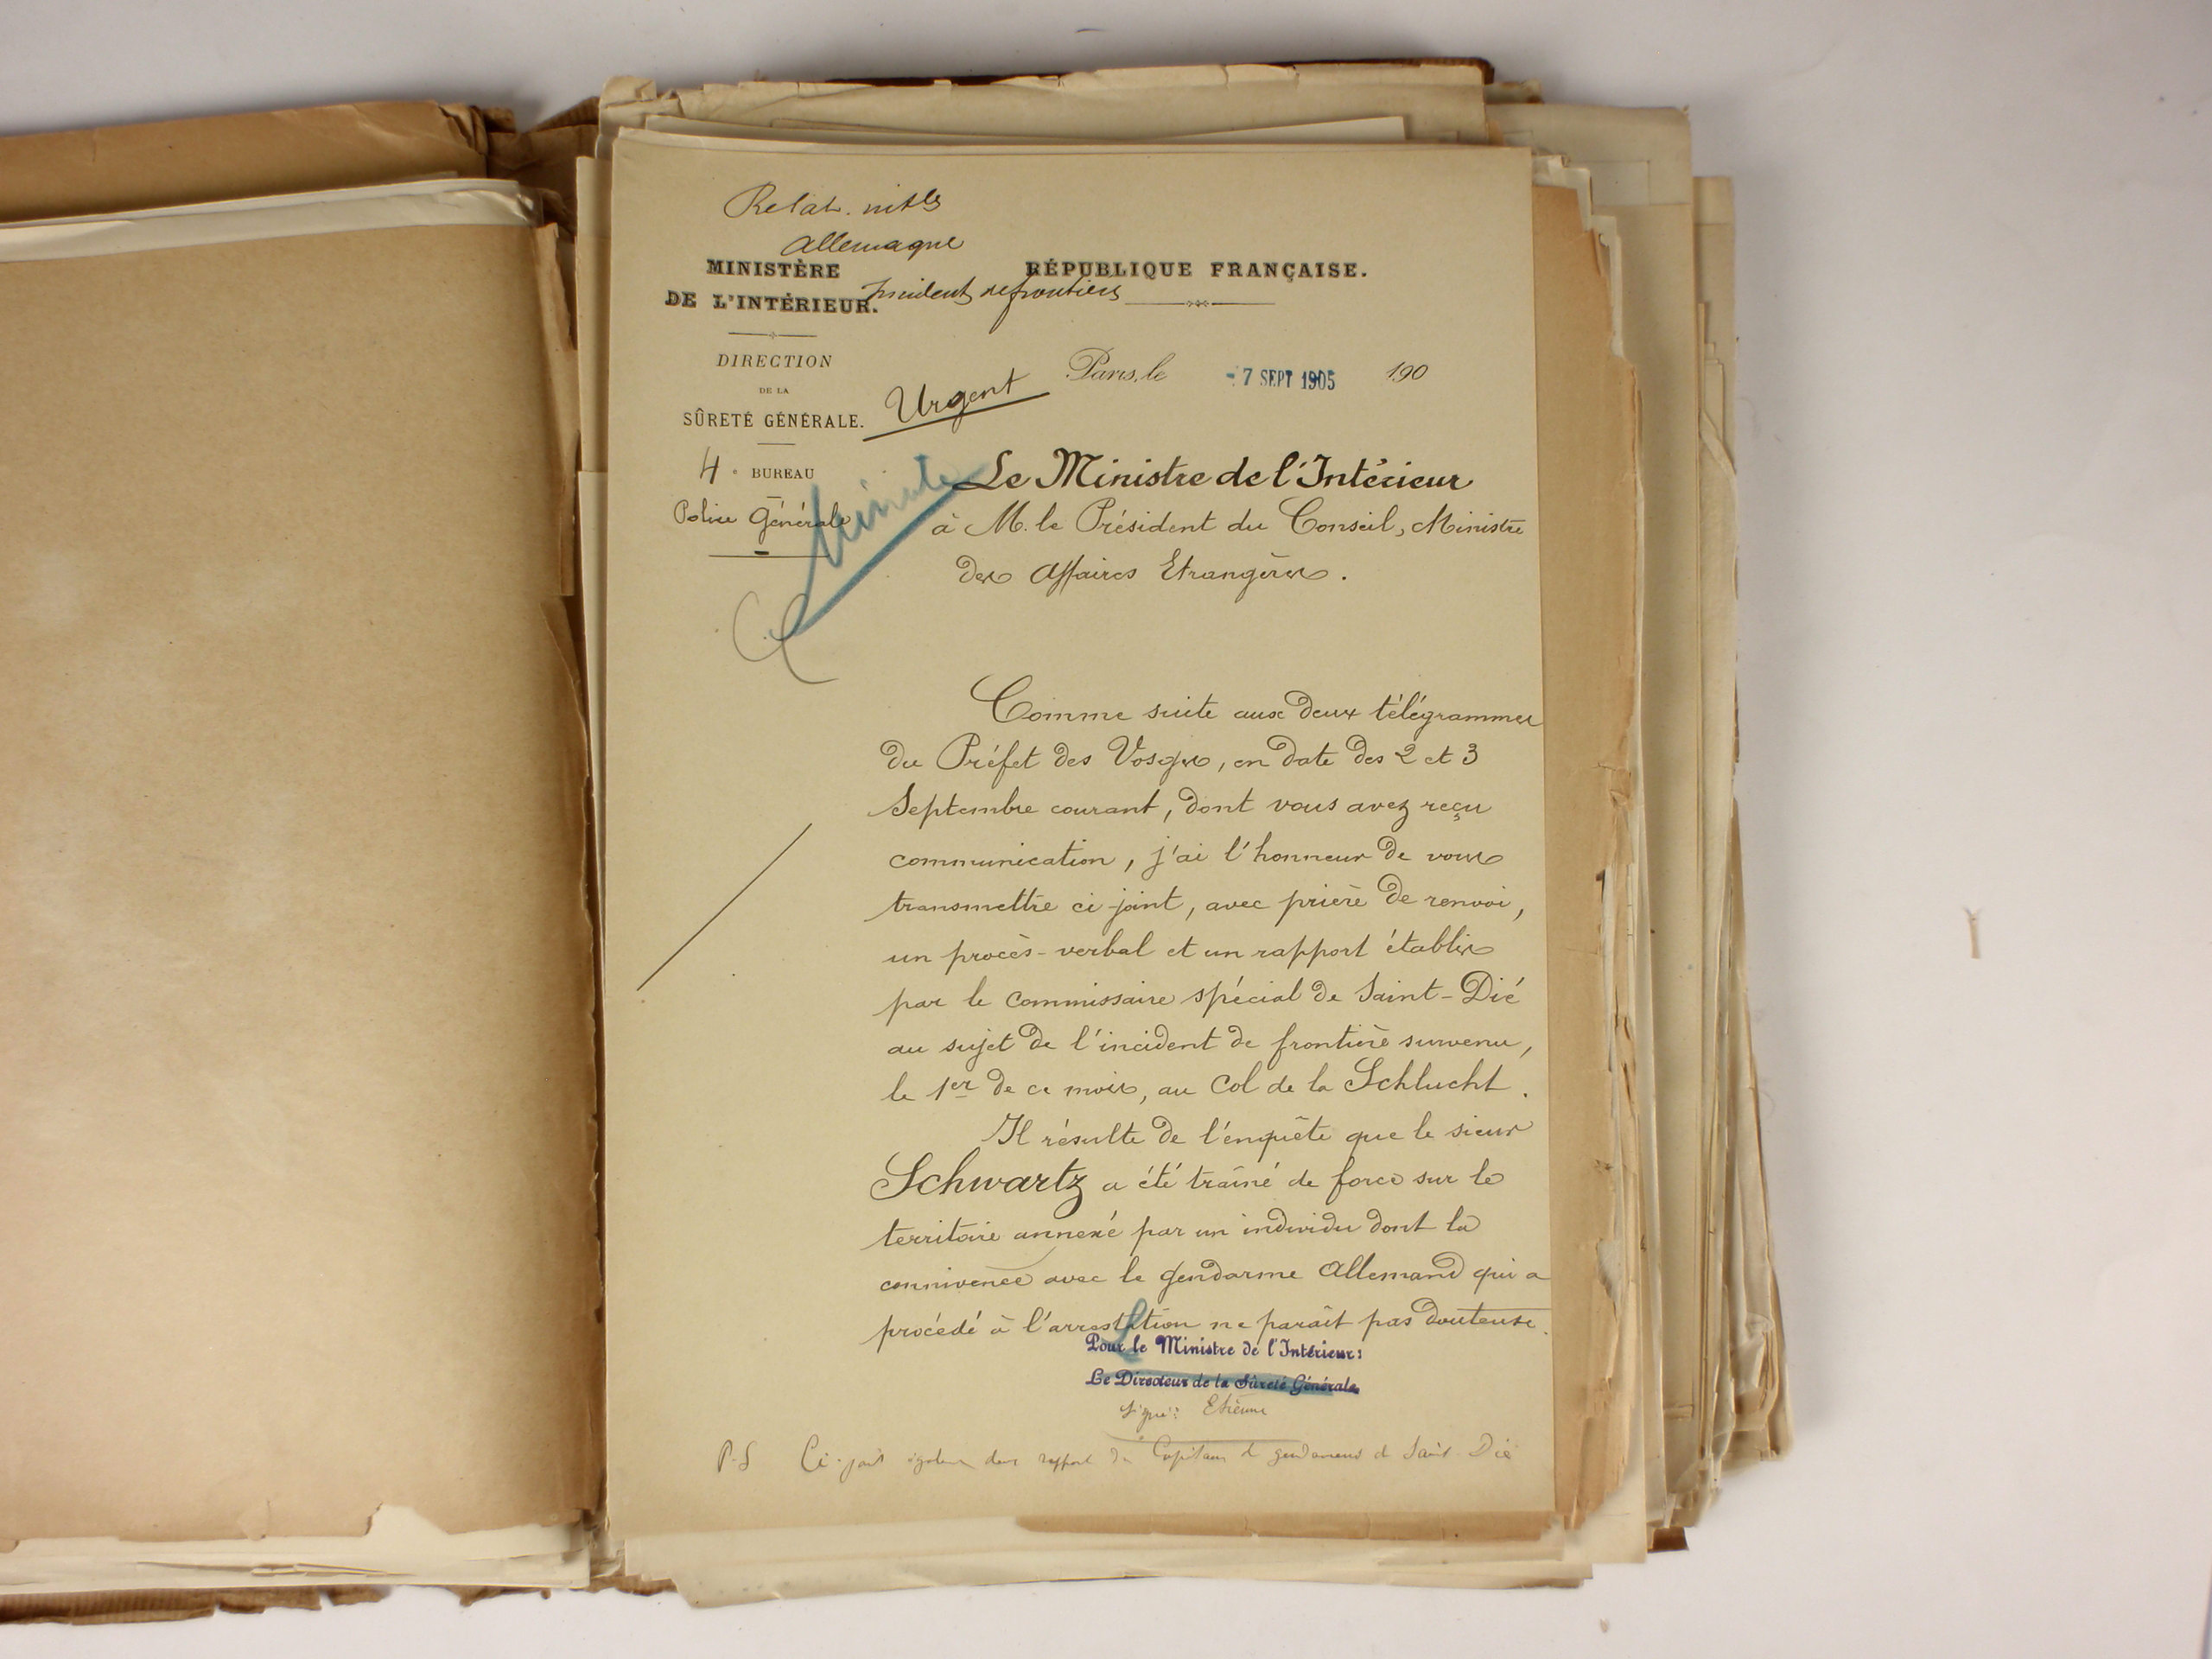 Relat.
Allemagne
MINISTÈRE
DE L'INTÉRIEUR.
Incident de frontière
RÉPUBLIQUE FRANÇAISE.
DIRECTION
DE LA
SÛRETÉ GÉNÉRALE.
Urgent
Paris, le - 7 SEPT 1905 190
4e BUREAU
Police Générale
Minute
Le Ministre de l'Intérieur
à M. le Président du Conseil, Ministre
des Affaires Etrangères.
Comme suite aux deux télégrammes
du Préfet des Vosges, en date des 2 et 3
Septembre courant, dont vous avez reçu
communication, j'ai l'honneur de vous
transmettre ci-joint, avec prière de renvoi,
un procès-verbal et un rapport établis
par le Commissaire spécial de Saint-Dié
au sujet de l'incident de frontière survenu,
le 1er de ce mois, au Col de la Schlucht.
Il résulte de l'enquête que le sieur
Schwartz a été traîné de force sur le
territoire annexé par un individu dont la
connivence avec le gendarme Allemand qui a
procédé à l'arrestation ne paraît pas douteuse.
Pour le Ministre de l'Intérieur:
Le Directeur de la Sûreté Générale
Signé: Etienne
P.S Ci-joint également deux rapports du Capitaine de gendarmerie de Saint-Dié